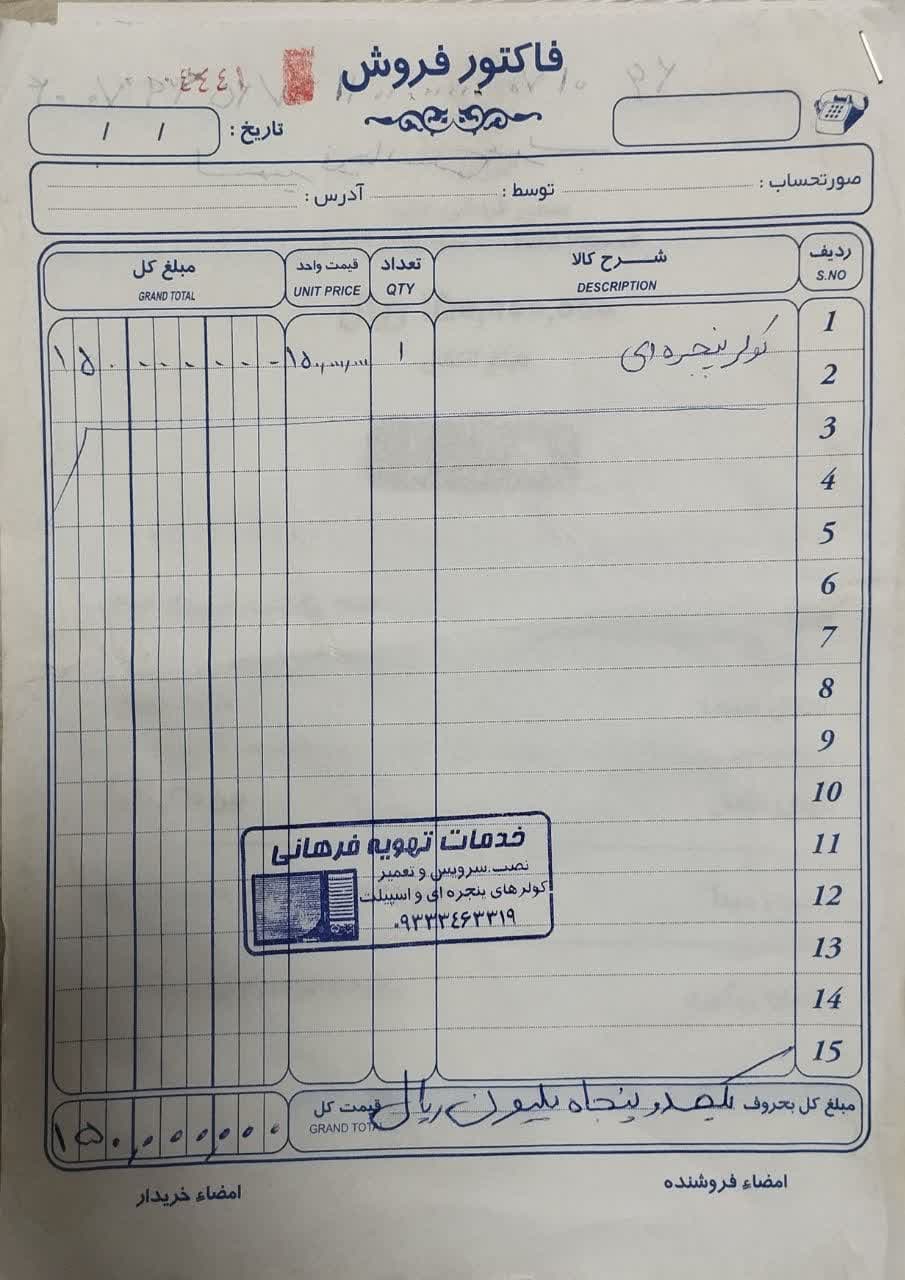 فاکتور فروش
۱۴۴۰
تاریخ : / /
صورتحساب : توسط : آدرس :
ردیف شرح کالا تعداد قیمت واحد مبلغ کل
S.NO DESCRIPTION QTY UNIT PRICE GRAND TOTAL
1 کولر پنجره ای ۱ ۱۵۰,۰۰۰,۰۰۰ ۱۵۰۰۰۰۰۰۰
2
3
4
5
6
7
8
9
10
11
12
13
14
15
خدمات تهویه فرهانی
نصب.سرویس و تعمیر
کولرهای پنجره ای و اسپیلت
۰۹۳۳۳۴۶۳۳۱۹
مبلغ کل بحروف یکصد و پنجاه میلیون ریال قیمت کل ۱۵۰,۰۰۰,۰۰۰
GRAND TOTAL
امضاء فروشنده امضاء خریدار